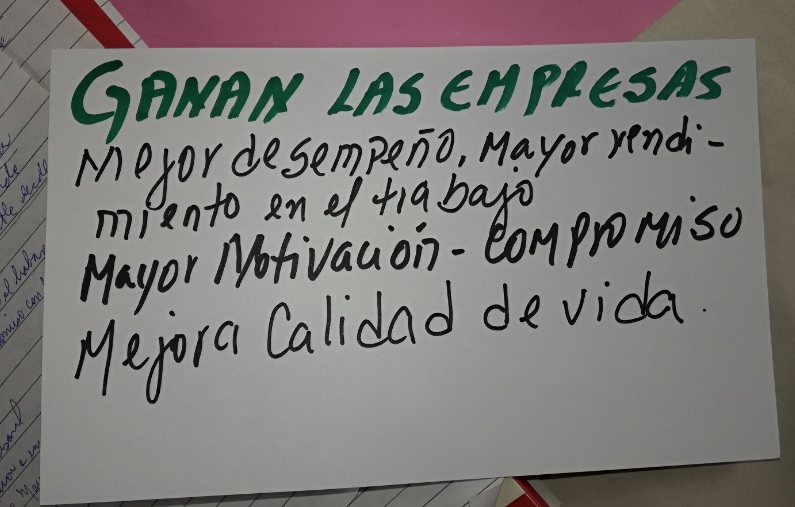 GANAN LAS EMPRESAS
Mejor desempeño, Mayor rendi-
miento en el trabajo
Mayor Motivación - COMPROMISO
Mejora Calidad de vida.